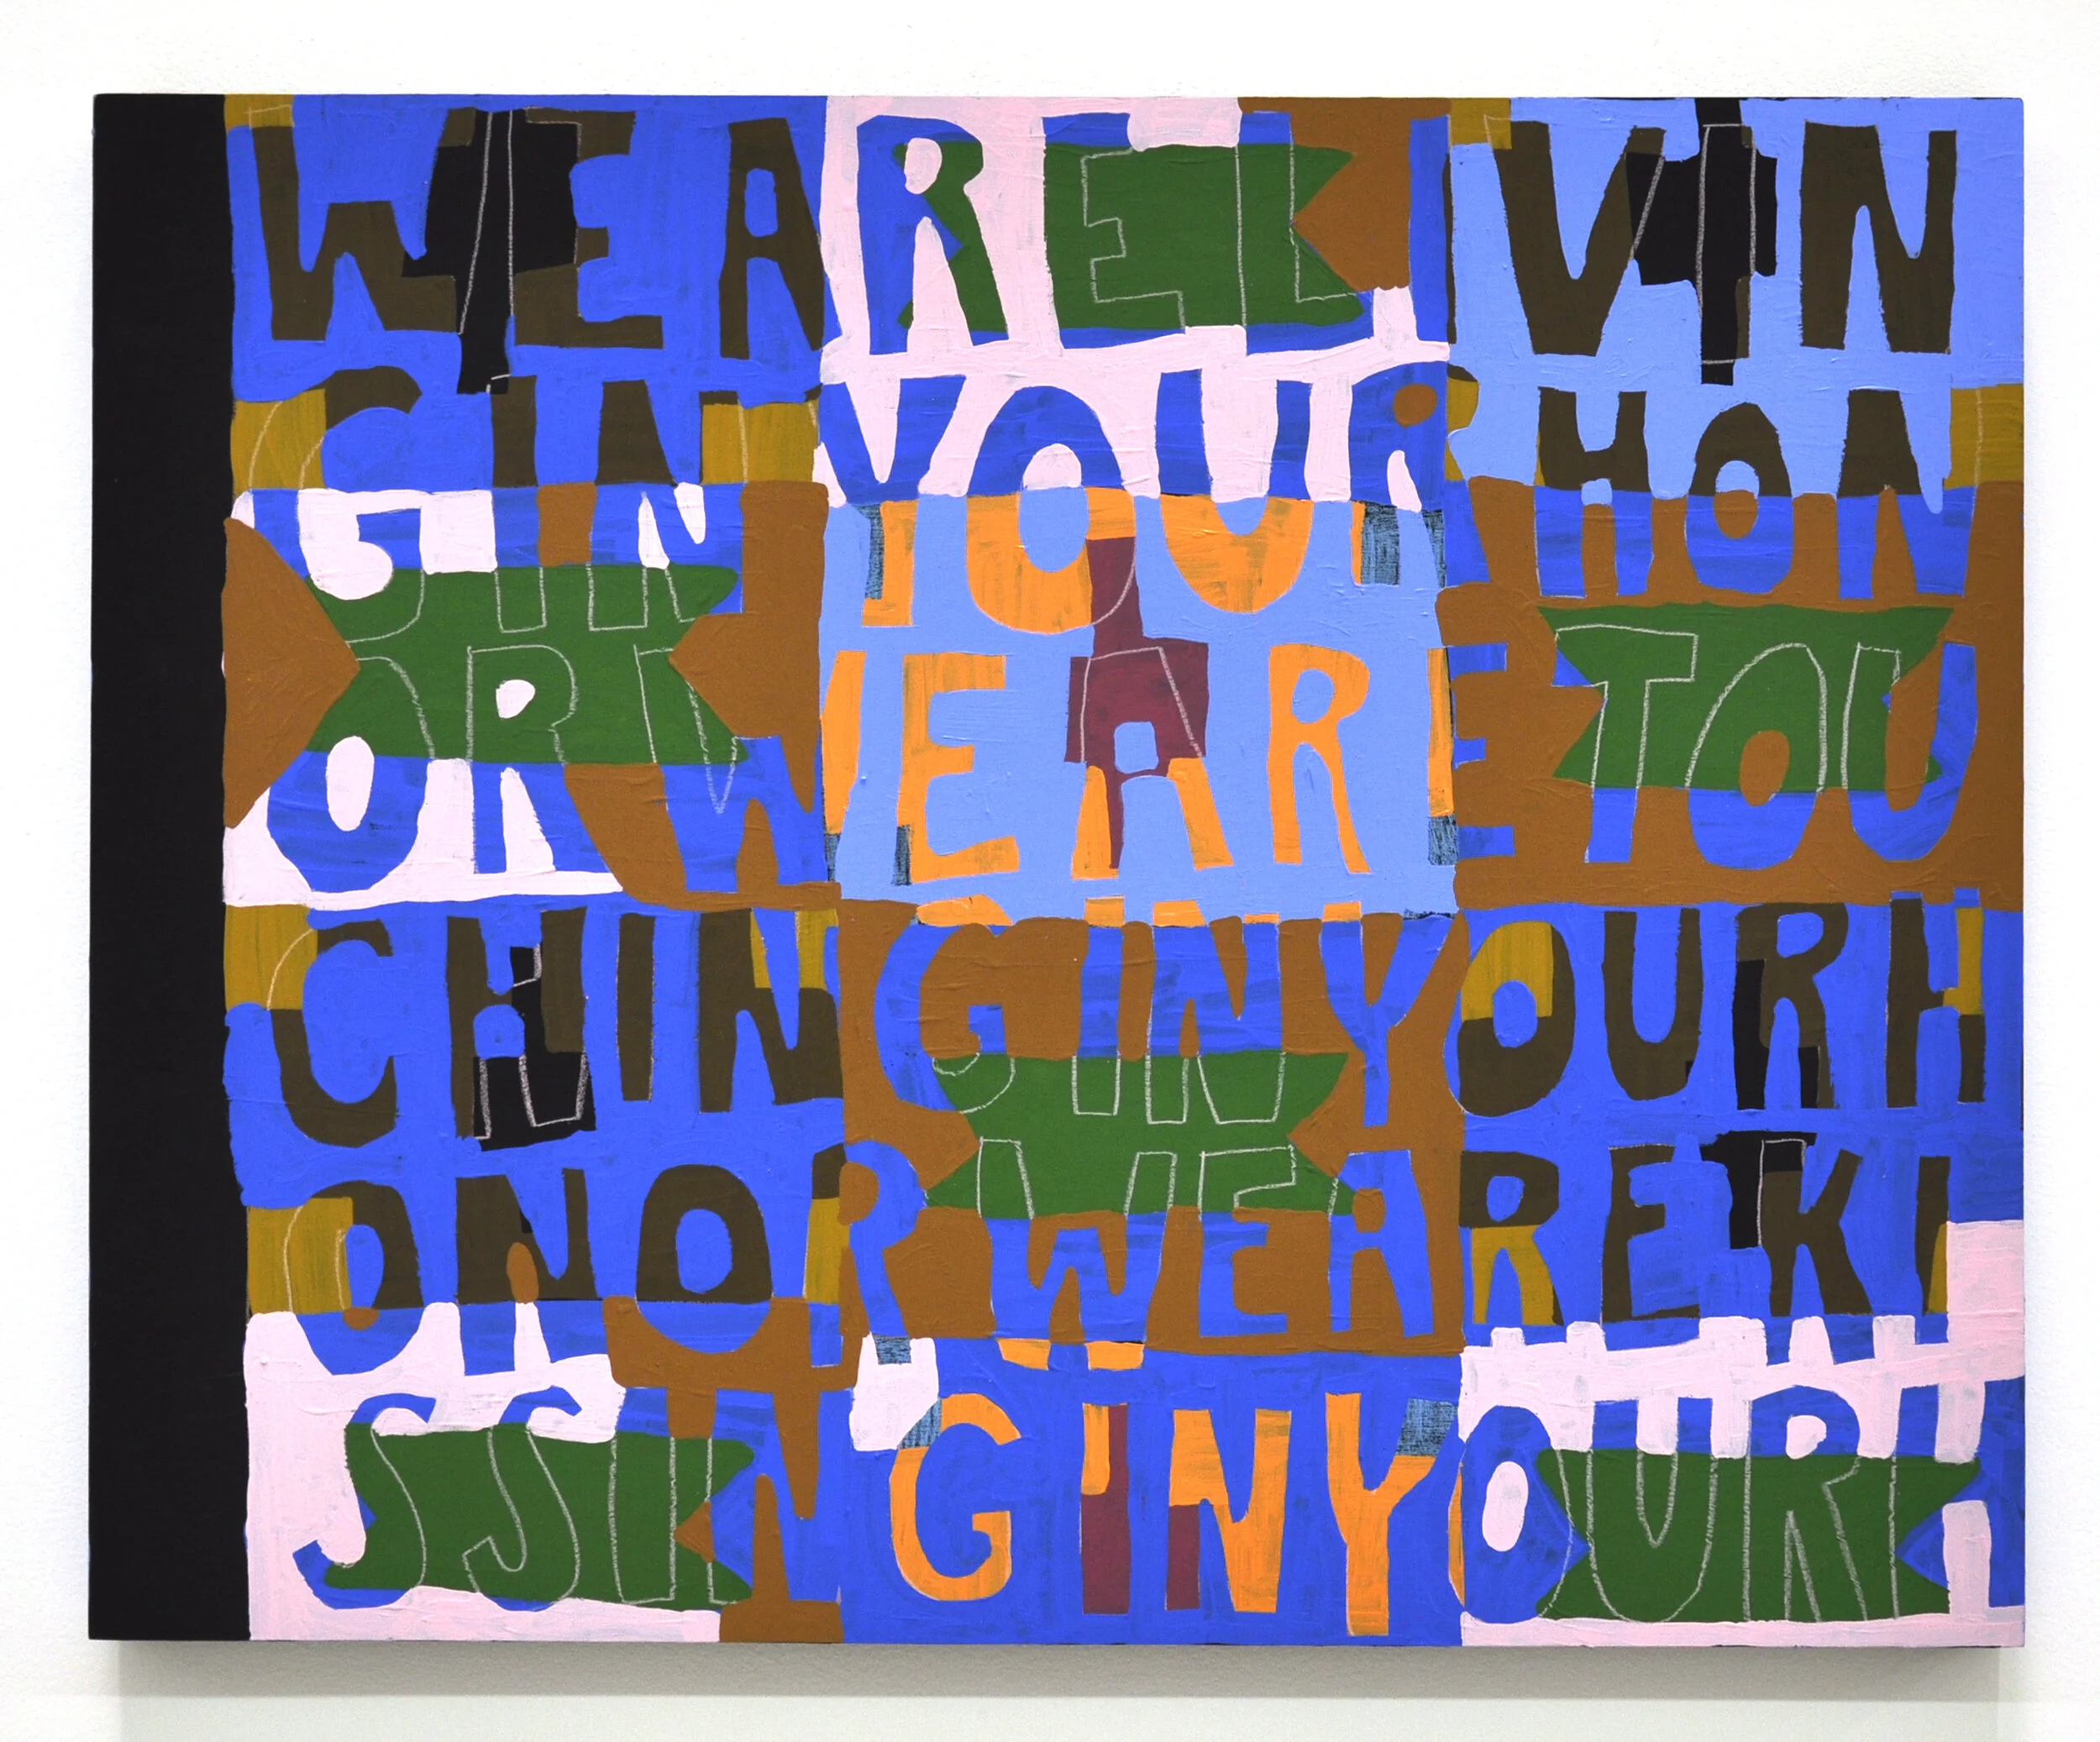 WEARELIVIN
GINYOURHON
ORWEARETOU
CHINGINYOURH
ONORWEAREKI
SSINGINYOURH